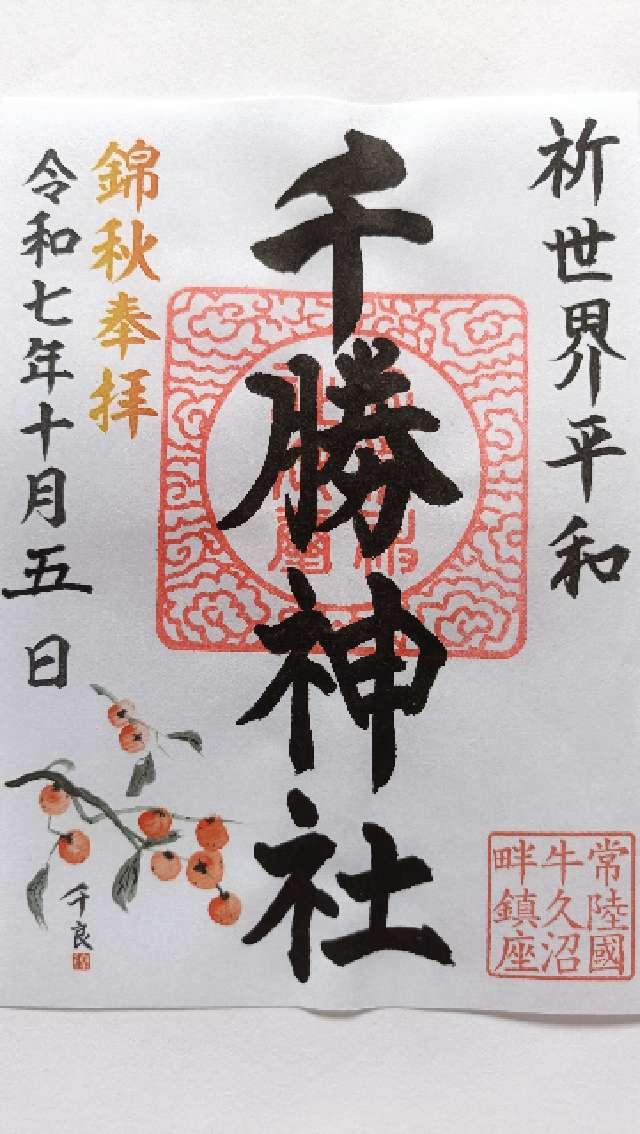 祈世界平和
常陸國
牛久沼
畔鎮座
千勝神社
錦秋奉拝
令和七年十月五日
千良